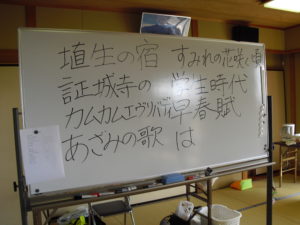 埴生の宿 すみれの花咲く頃
証城寺の 学生時代
カムカムエヴリバディ 早春賦
あざみの歌 は